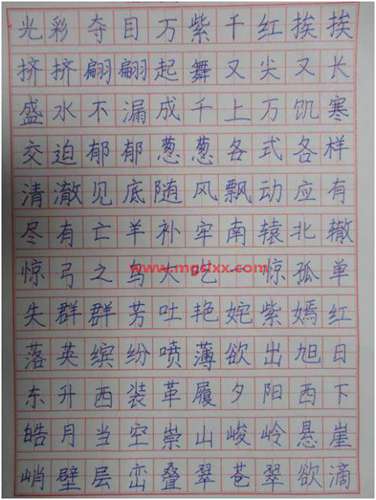 光彩夺目万紫千红挨挨
挤挤翩翩起舞又尖又长
盛水不漏成千上万饥寒
交迫郁郁葱葱各式各样
清澈见底随风飘动应有
尽有亡羊补牢南辕北辙
惊弓之鸟大 惊孤单
www.mgslxx.com
失群群芳吐艳姹紫嫣红
落英缤纷喷薄欲出旭日
东升西装革履夕阳西下
皓月当空崇山峻岭悬崖
峭壁层峦叠翠苍翠欲滴